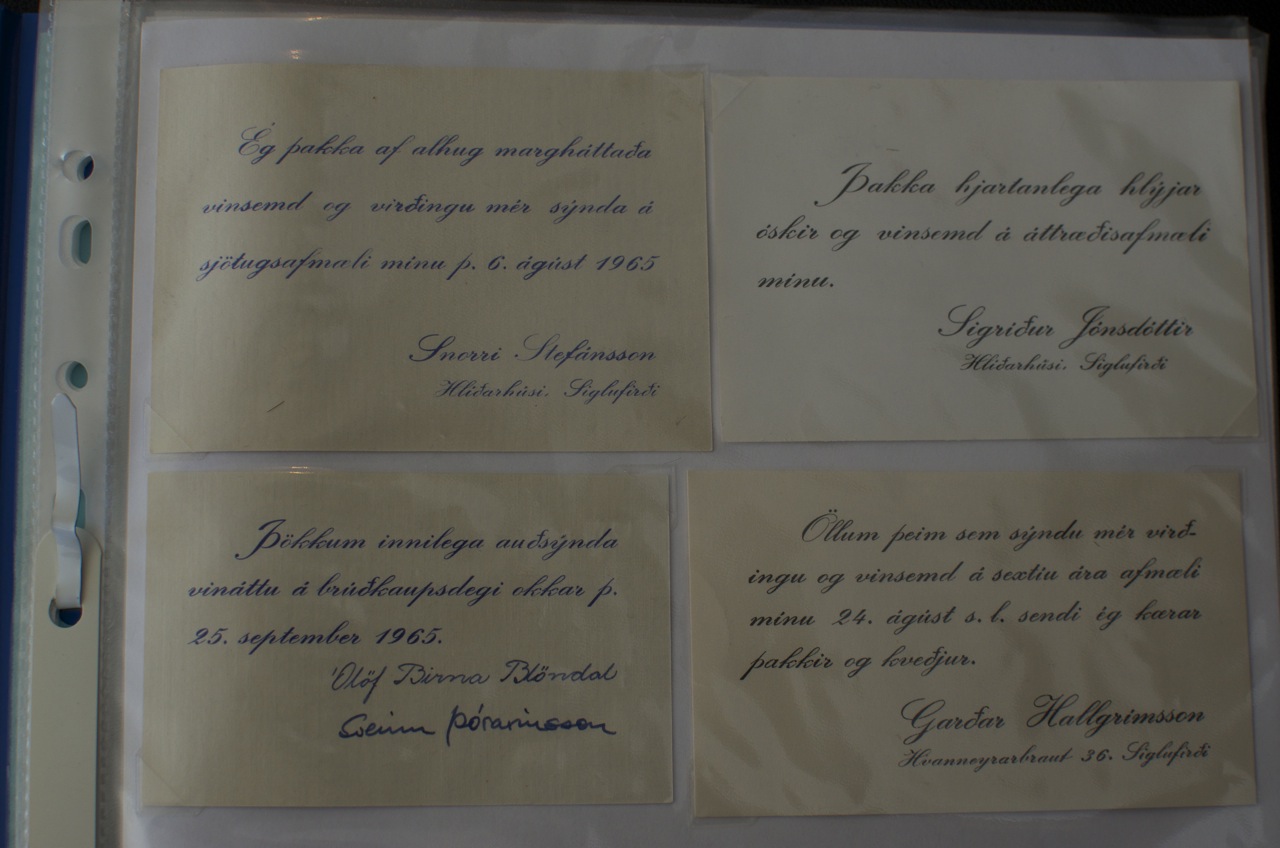 Ég þakka af alhug margháttaða
vinsemd og virðingu mér sýnda á
sjötugsafmæli mínu þ. 6. ágúst 1965
Snorri Stefánsson
Hlíðarhúsi. Siglufirði
Þakka hjartanlega hlýjar
óskir og vinsemd á áttræðisafmæli
mínu.
Sigríður Jónsdóttir
Hlíðarhúsi. Siglufirði
Þökkum innilega auðsýnda
vináttu á brúðkaupsdegi okkar þ.
25. september 1965.
Ólöf Birna Blöndal
Sveinn Þórarinsson
Öllum þeim sem sýndu mér virð-
ingu og vinsemd á sextíu ára afmæli
mínu 24. ágúst s. l. sendi ég kærar
þakkir og kveðjur.
Garðar Hallgrímsson
Hvanneyrarbraut 36. Siglufirði